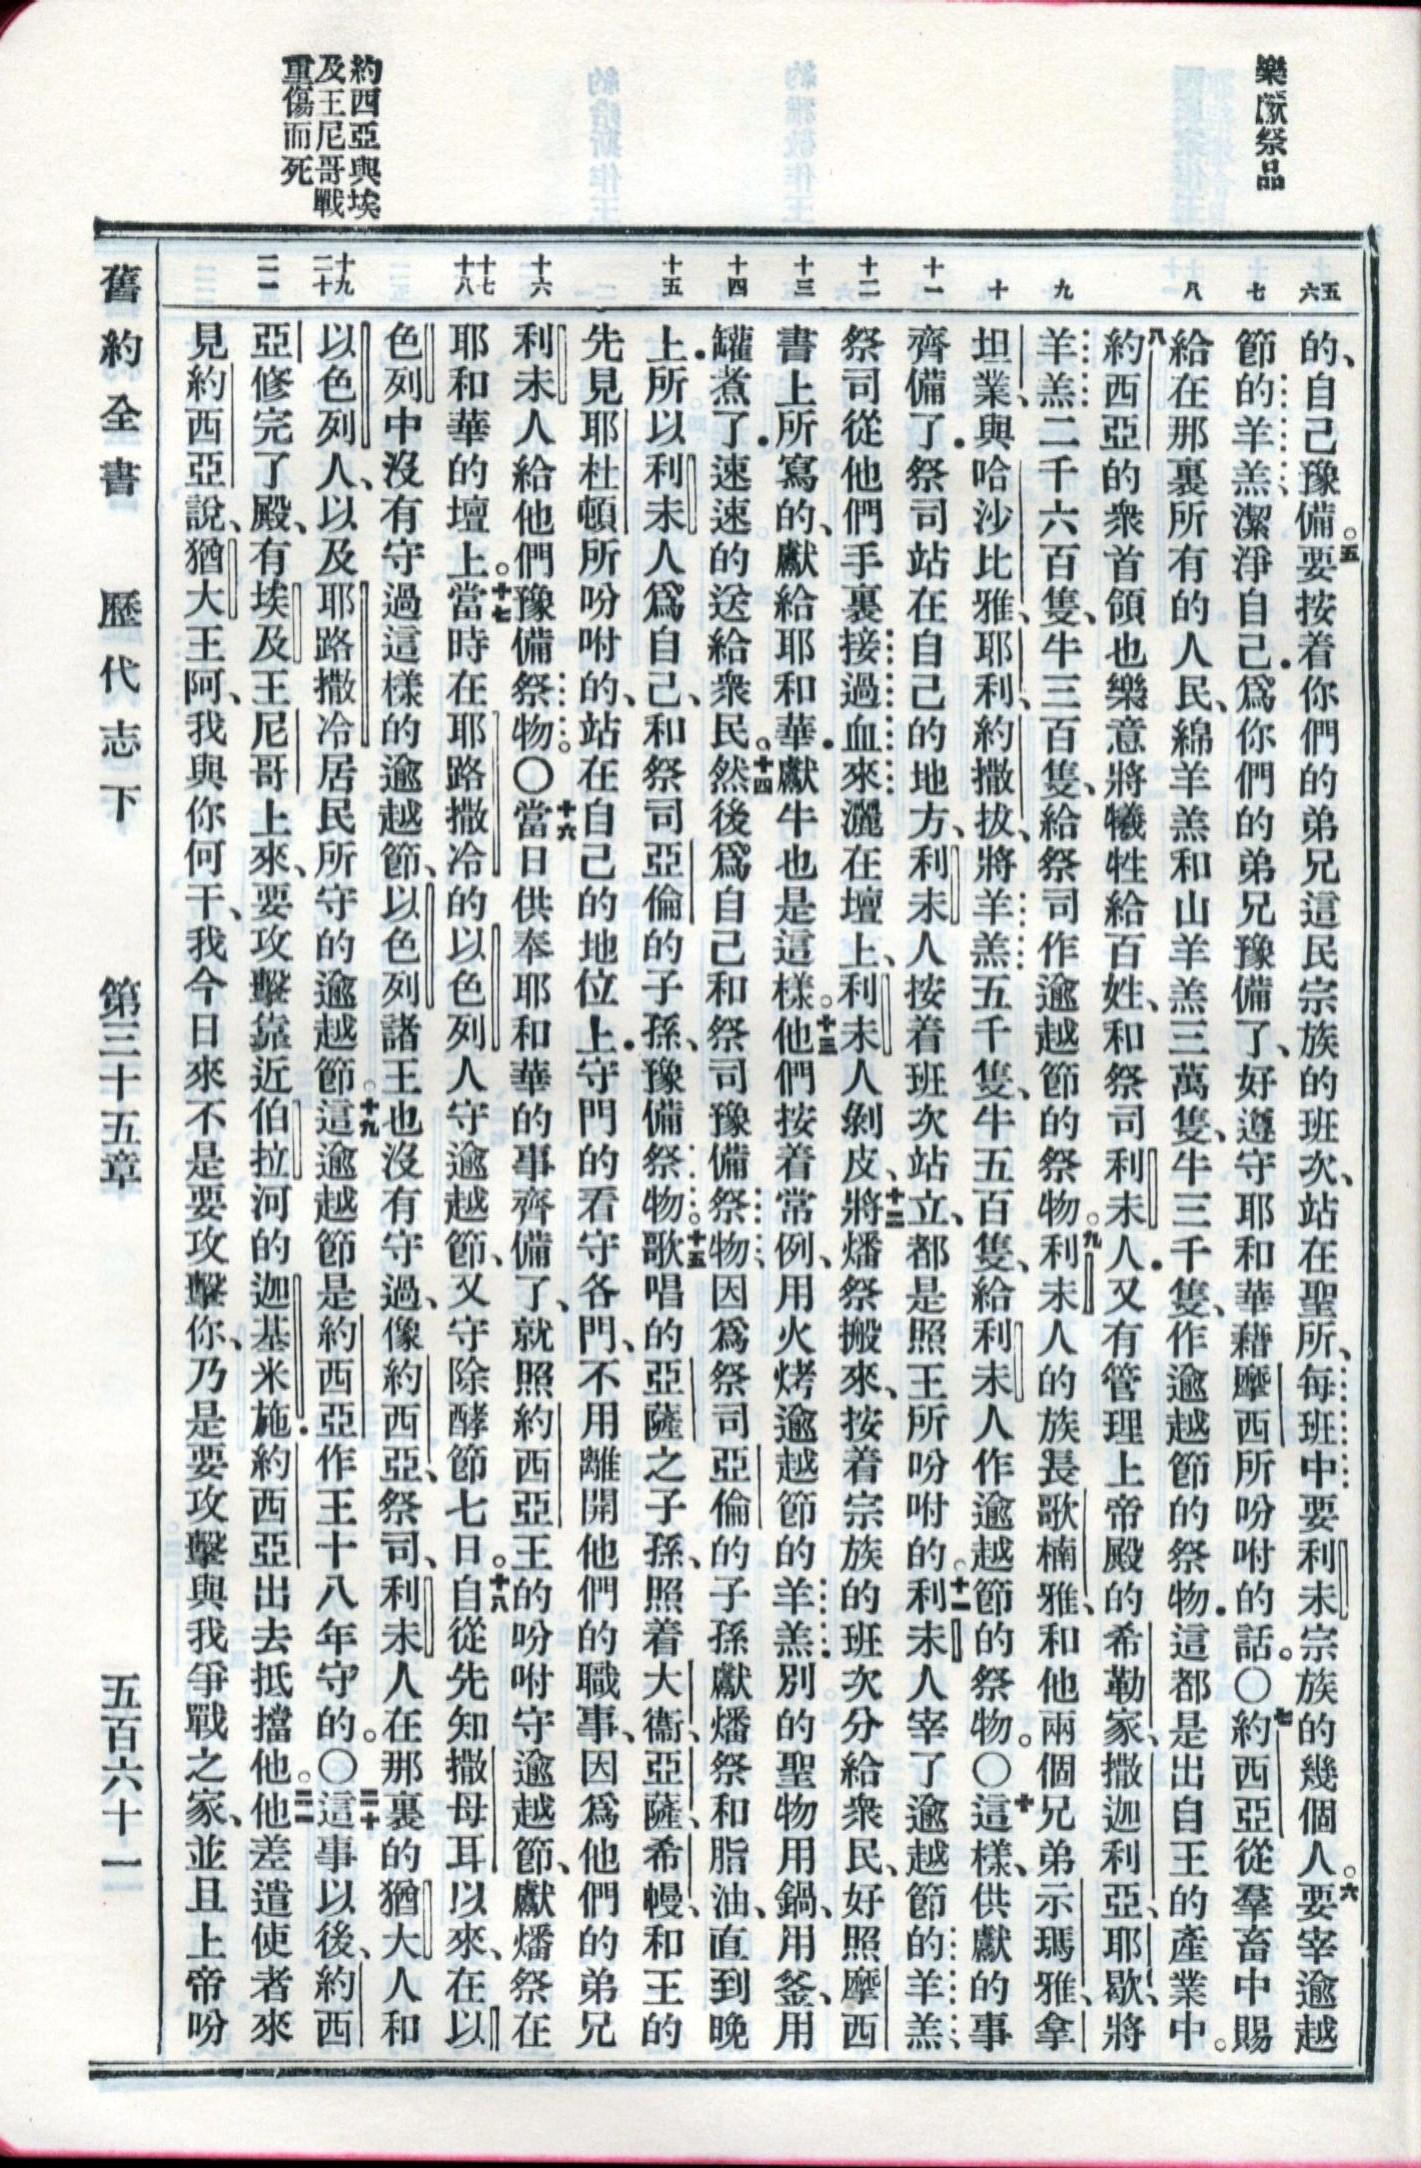 樂獻祭品
約西亞與埃
及王尼哥戰
重傷而死
五
六
七
八
九
十
十一
十二
十三
十四
十五
十六
十七
十八
十九
二十
二一
的、自己豫備。五要按着你們的弟兄這民宗族的班次、站在聖所、每班中要利未宗族的幾個人。六要宰逾越
節的羊羔、潔淨自己．爲你們的弟兄豫備了、好遵守耶和華藉摩西所吩咐的話。〇七約西亞從羣畜中賜
給在那裏所有的人民、綿羊羔和山羊羔三萬隻、牛三千隻、作逾越節的祭物．這都是出自王的產業中。
八約西亞的衆首領也樂意將犧牲給百姓、和祭司利未人．又有管理上帝殿的希勒家、撒迦利亞、耶歇、將
羊羔二千六百隻、牛三百隻、給祭司作逾越節的祭物。九利未人的族長歌楠雅、和他兩個兄弟示瑪雅、拿
坦業、與哈沙比雅、耶利、約撒拔、將羊羔五千隻、牛五百隻、給利未人作逾越節的祭物。〇十這樣、供獻的事
齊備了．祭司站在自己的地方、利未人按着班次站立、都是照王所吩咐的。十一利未人宰了逾越節的羊羔、
祭司從他們手裏接過血來灑在壇上、利未人剝皮、十二將燔祭搬來、按着宗族的班次分給衆民、好照摩西
書上所寫的、獻給耶和華．獻牛也是這樣。十三他們按着常例、用火烤逾越節的羊羔．別的聖物用鍋、用釜、用
罐煮了．速速的送給衆民。十四然後爲自己和祭司豫備祭物、因爲祭司亞倫的子孫獻燔祭和脂油、直到晚
上．所以利未人爲自己、和祭司亞倫的子孫、豫備祭物。十五歌唱的亞薩之子孫、照着大衞、亞薩、希幔、和王的
先見耶杜頓所吩咐的、站在自己的地位上．守門的看守各門、不用離開他們的職事、因爲他們的弟兄
利未人給他們豫備祭物。〇十六當日供奉耶和華的事齊備了、就照約西亞王的吩咐守逾越節、獻燔祭在
耶和華的壇上。十七當時在耶路撒冷的以色列人守逾越節、又守除酵節七日。十八自從先知撒母耳以來、在以
色列中沒有守過這樣的逾越節、以色列諸王也沒有守過、像約西亞、祭司、利未人、在那裏的猶大人和
以色列人、以及耶路撒冷居民所守的逾越節。十九這逾越節是約西亞作王十八年守的。〇二十這事以後、約西
亞修完了殿、有埃及王尼哥上來、要攻擊靠近伯拉河的迦基米施．約西亞出去抵擋他。二一他差遣使者來
見約西亞說、猶大王阿、我與你何干、我今日來不是要攻擊你、乃是要攻擊與我爭戰之家、並且上帝吩
舊約全書　歷代志下　第三十五章　五百六十一